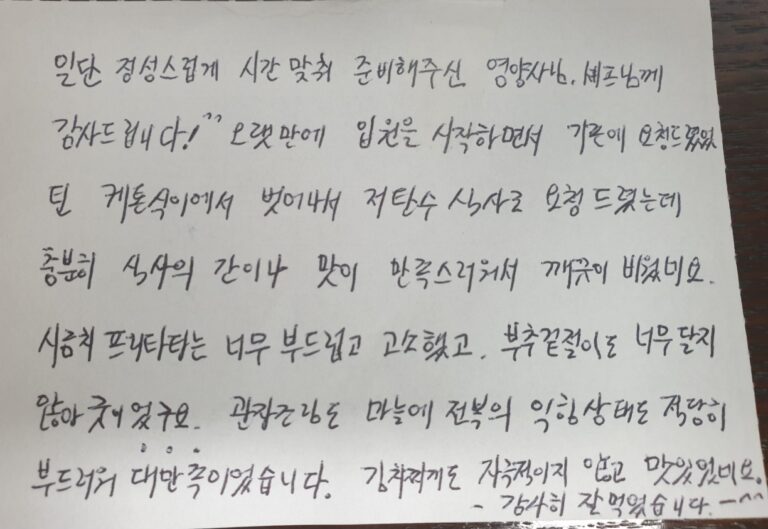 일단 정성스럽게 시간 맞춰 준비해주신 영양사님, 셰프님께
감사드립니다!^^ 오랫만에 입원을 시작하면서 기존에 요청드렸었
던 케톤식이에서 벗어나서 저탄수 식사로 요청 드렸는데
충분히 식사의 간이나 맛이 만족스러워서 깨끗이 비웠네요.
시금치 프리타타는 너무 부드럽고 고소했고, 부추겉절이도 너무 달지
않아 굿이었구요. 관자조림도 마늘에 전복의 익힘상태도 적당히
부드러워 대만족이었습니다. 김치찌개도 자극적이지 않고 맛있었네요.
- 감사히 잘 먹었습니다. -^^